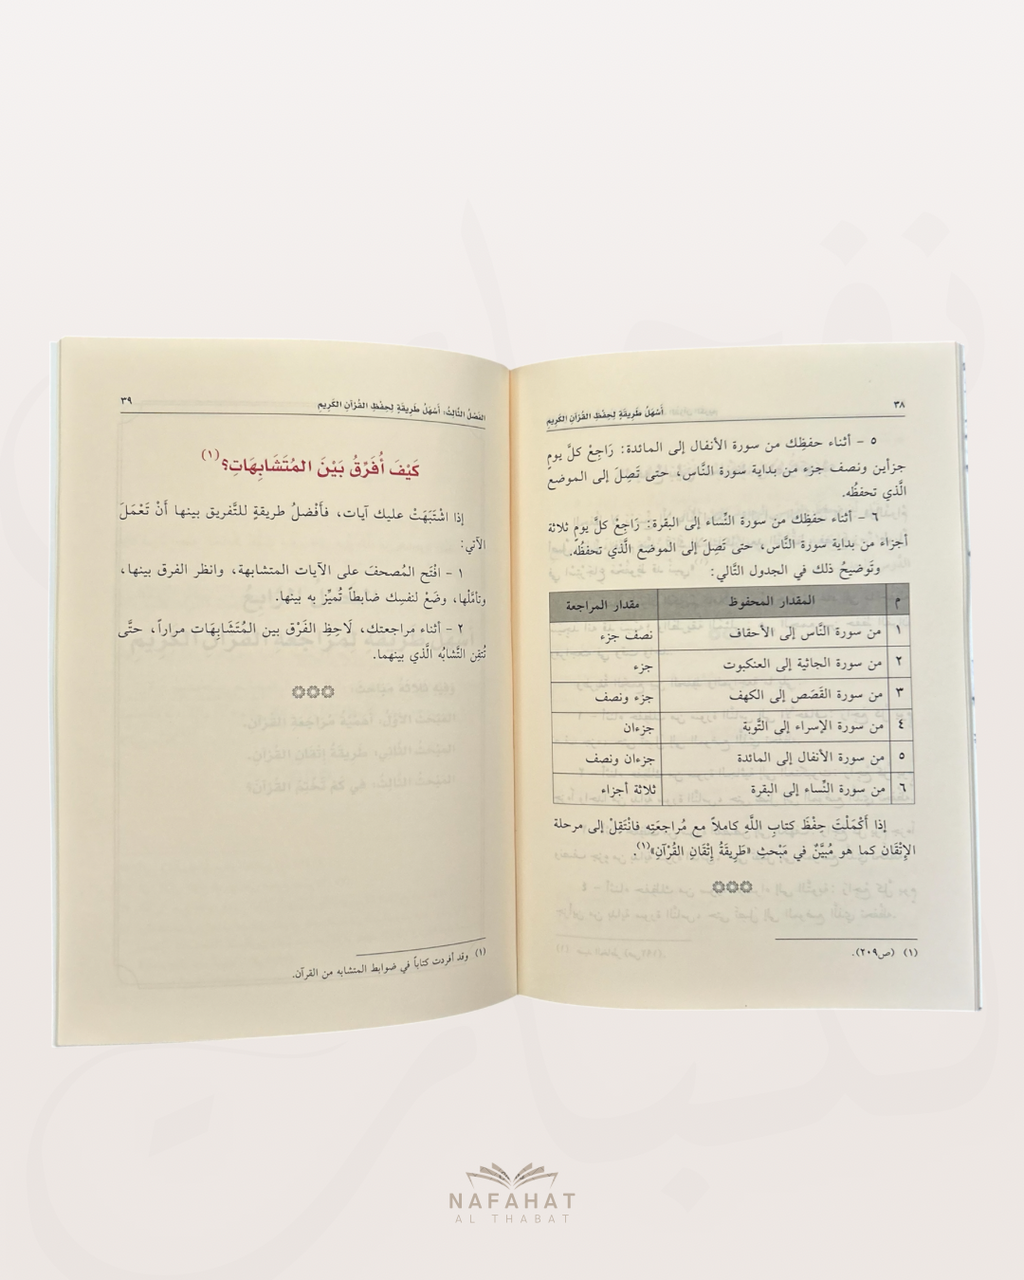 ٣٨
أَسْهَلُ طَرِيقَةٍ لِحِفْظِ القُرْآنِ الكَرِيمِ
٥ - أثناء حفظِك من سورة الأنفال إلى المائدة: رَاجِعْ كلَّ يومٍ
جزأين ونصف جزء من بداية سورة النَّاس، حتى تَصِلَ إلى الموضع
الَّذي تحفظُه.
٦ - أثناء حفظِك من سورة النِّساء إلى البقرة: رَاجِعْ كلَّ يومٍ ثلاثة
أجزاء من بداية سورة النَّاس، حتى تَصِلَ إلى الموضع الَّذي تحفظُه.
وتَوضيحُ ذلك في الجدول التَّالي:
م المقدار المحفوظ مقدار المراجعة
١ من سورة النَّاس إلى الأحقاف نصف جزء
٢ من سورة الجاثية إلى العنكبوت جزء
٣ من سورة القَصَص إلى الكهف جزء ونصف
٤ من سورة الإسراء إلى التَّوبة جزءان
٥ من سورة الأنفال إلى المائدة جزءان ونصف
٦ من سورة النِّساء إلى البقرة ثلاثة أجزاء
إذا أَكْمَلْتَ حِفْظَ كتابِ اللَّهِ كاملاً مع مُراجَعَتِه فانْتَقِلْ إلى مرحلة
الإِتْقَان كما هو مُبَيَّنٌ في مَبْحثِ «طَرِيقَةُ إِتْقَانِ القُرْآنِ»(١).
(١) (ص٢٠٩).
الفَصْلُ الثَّالِثُ: أَسْهَلُ طَرِيقَةٍ لِحِفْظِ القُرْآنِ الكَرِيمِ
٣٩
كَيْفَ أُفَرِّقُ بَيْنَ المُتَشَابِهَاتِ؟(١)
إذا اشْتَبَهَتْ عليك آيات، فَأَفْضلُ طريقةٍ للتَّفريق بينها أَنْ تَعْمَلَ
الآتي:
١ - افْتَح المُصحفَ على الآيات المتشابهة، وانظر الفرق بينها،
وتأمَّلْها، وضَعْ لنفسِك ضابطاً تُميِّز به بينها.
٢ - أثناء مراجعتك، لَاحِظِ الفَرْق بين المُتَشَابِهَات مراراً، حتَّى
تُتقِن التَّشابُه الَّذي بينهما.
(١) وقد أفردت كتاباً في ضوابط المتشابه من القرآن.
NAFAHAT
AL THABAT